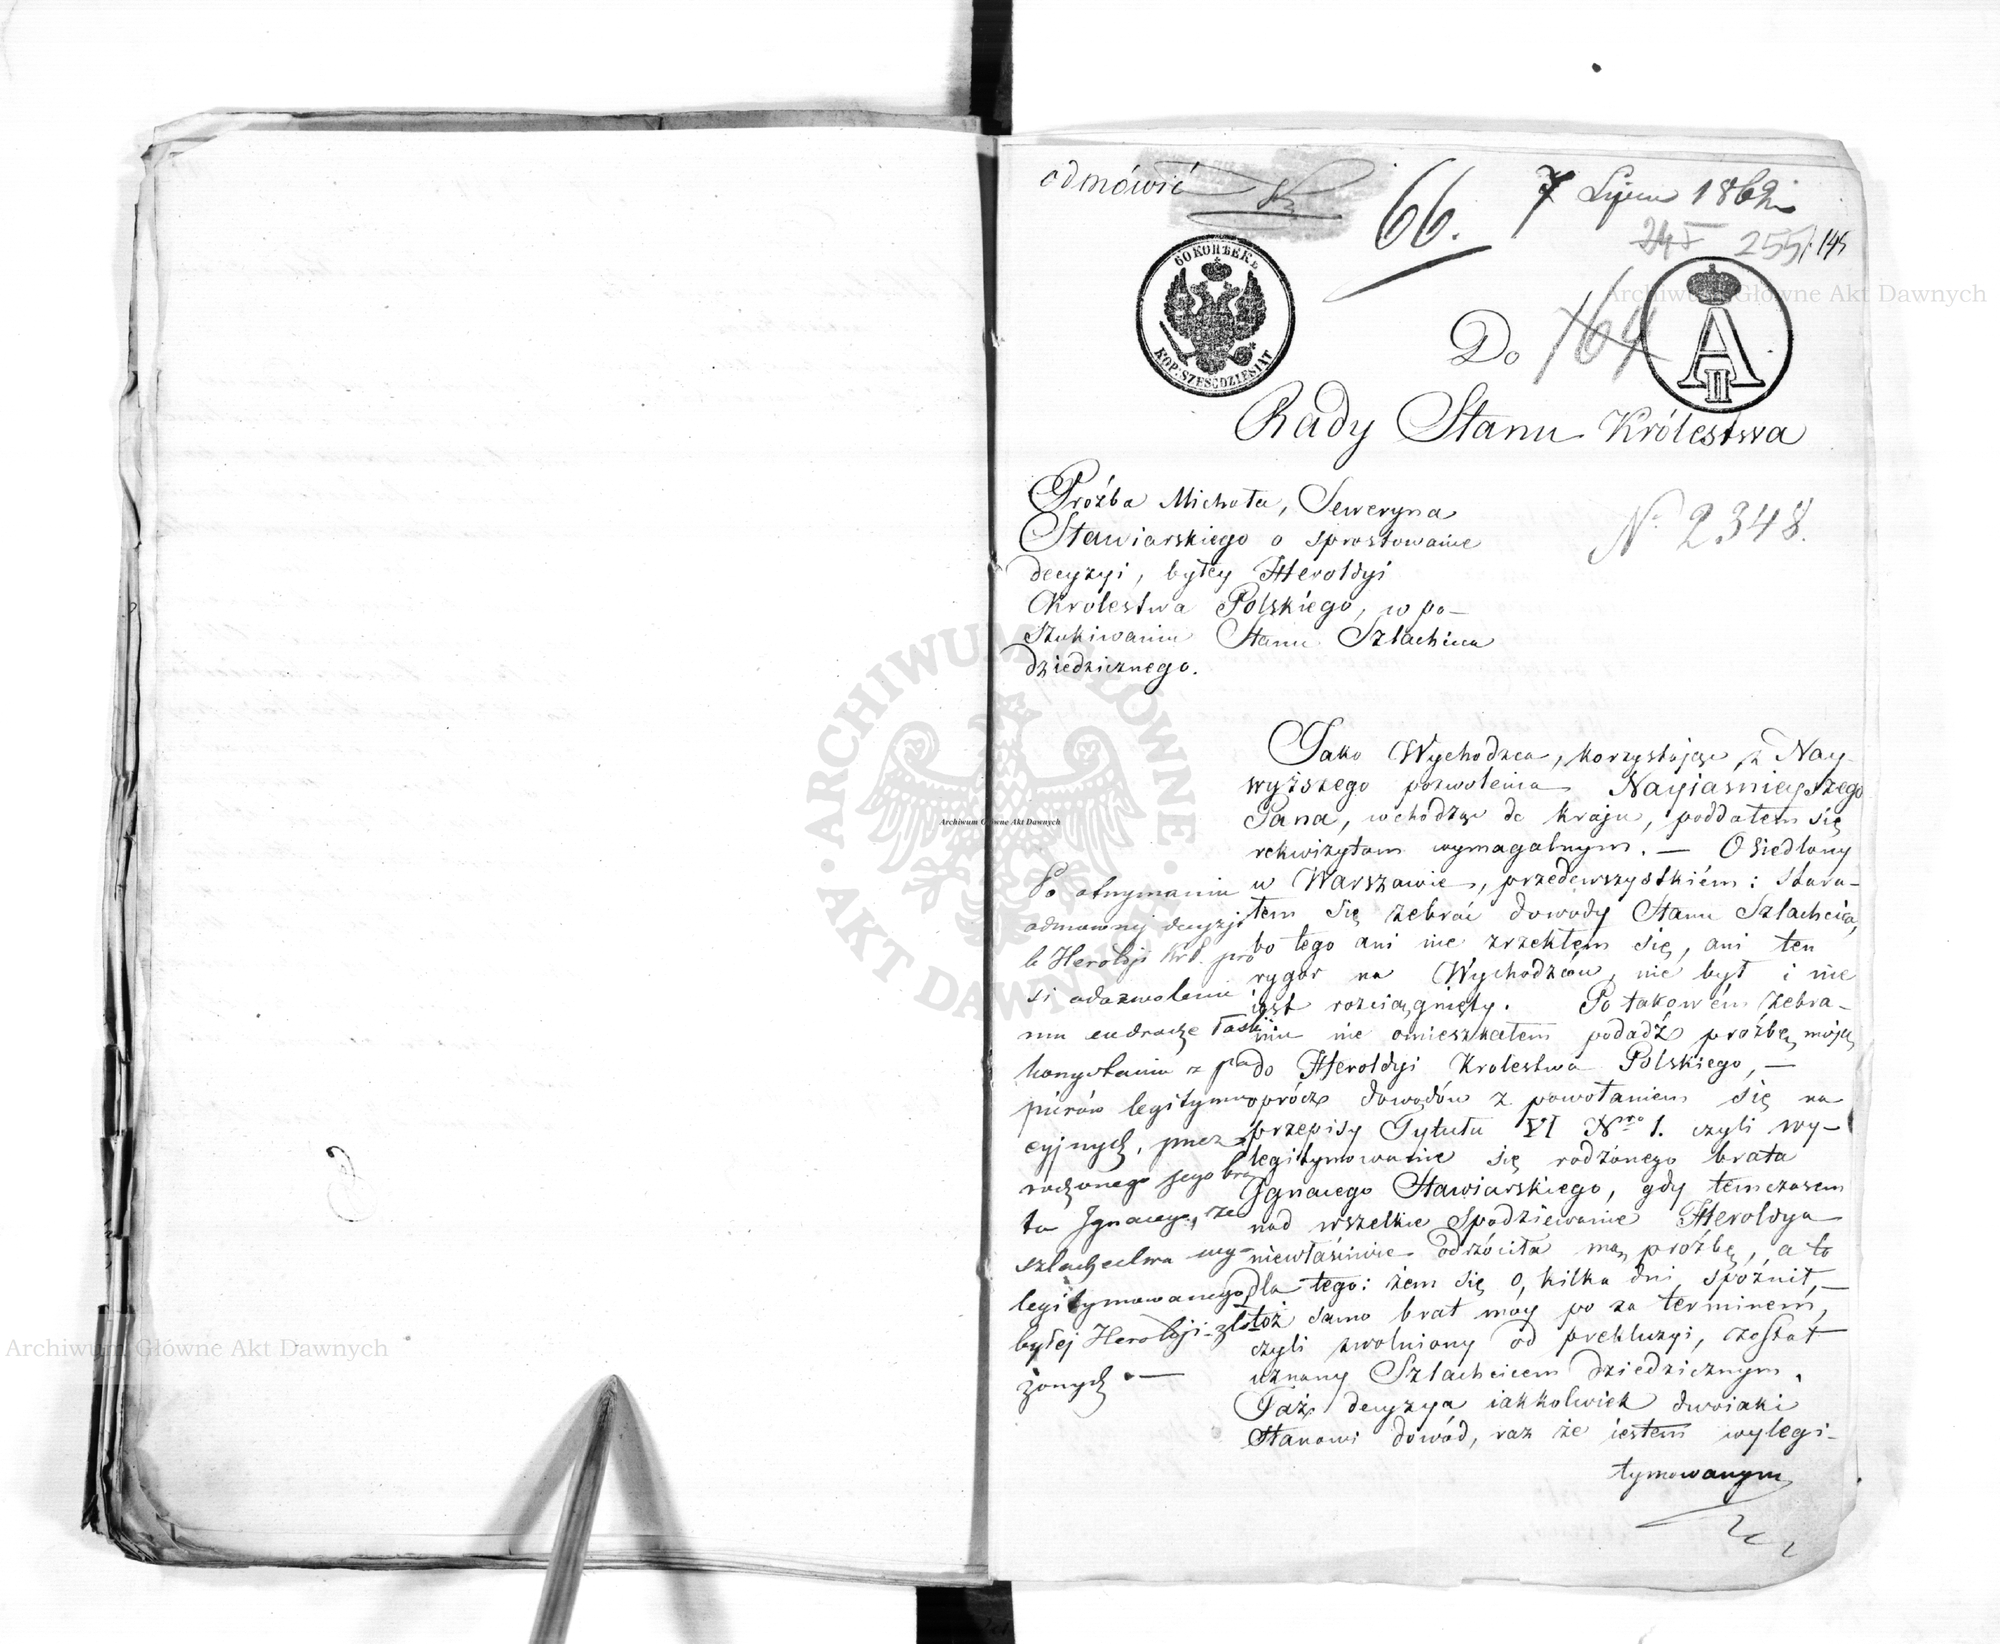 odmówić
66.
7 Lipca 1862
245 255 / 145
60 КОПѢЕКЪ
KOP: SZEŚĆDZIESIĄT
A II
Do
164
Rady Stanu Królestwa
Proźba Michała, Seweryna
Stawiarskiego o sprostowanie
decyzyi, byłey Heroldyi
Krolestwa Polskiego, w po-
szukiwaniu Stanu Szlachcica
dziedzicznego.
N. 2348.
Jako Wychodzca, korzystając z Nay-
wyższego pozwolenia Nayiasnieyszego
Pana, wchodząc do kraju, poddałem się
rekwizytom wymagalnym. — Osiedlony
w Warszawie, przedewszystkiém: stara-
łem się zebrać dowody Stanu Szlachcica,
bo tego ani nie zrzekłem się, ani ten
rygor na Wychodzców, nie był i nie
iest rosciągnięty. Po takowém zebra-
niu nie omieszkałem podadź proźbę moją
do Heroldyi Krolestwa Polskiego, —
oprócz dowodów z powołaniem się na
przepisy Tytułu VI Nro 1. czyli wy-
legitymowanie się rodzonego brata
Ignacego Stawiarskiego, gdy temczasem
nad wszelkie spodziewanie Heroldya
niewłaściwie odrzóciła mą proźbę, a to
dla tego: żem się o kilka dni spóźnił, —
toż samo brat moy po za terminem,
czyli zwolniony od prekluzyi, został
uznany Szlachcicem dziedzicznym.
Taż decyzya iakkolwiek dwoiaki
Stanowi dowód, raz że iestem wylegi-
tymowanym
Po otrzymaniu
odmownej decyzji
b Heroldji Król. pro
si o dozwolenie
mu w drodze łaski
korzystania z pa
pierów legityma
cyjnych, przez
rodzonego jego bra
ta Ignacego, ze
szlachectwa wy-
legitymowanego
byłej Heroldji zło
żonych. —
Archiwum Główne Akt Dawnych
Archiwum Główne Akt Dawnych
Archiwum Główne Akt Dawnych
ARCHIWUM GŁÓWNE · AKT DAWNYCH ·